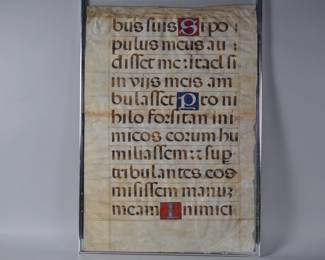 bus suis Si po
pulus meus au
disset me: israel si
in vijs meis am
bulasset Pro ni
hilo forsitan ini
micos eorum hu
miliassem: et sup
tribulantes eos
misissem manuʒ
meam Inimici